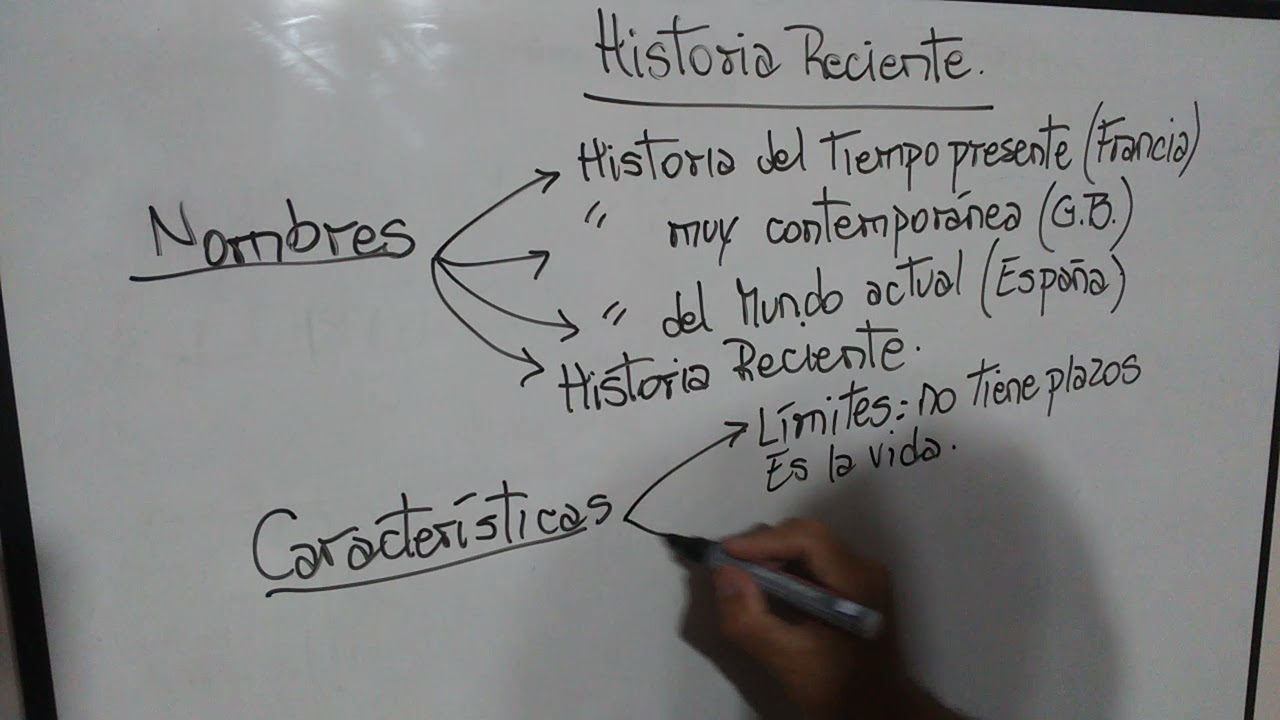 Historia Reciente.
Historia del Tiempo presente (Francia)
Nombres
" muy contemporánea (G.B.)
" del Mundo actual (España)
Historia Reciente.
Límites: no tiene plazos
Es la vida.
Características